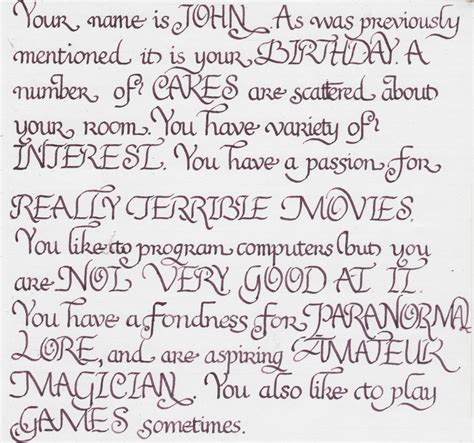 Your name is JOHN. As was previously
mentioned it is your BIRTHDAY. A
number of CAKES are scattered about
your room. You have variety of
INTEREST. You have a passion for
REALLY TERRIBLE MOVIES.
You like to program computers but you
are NOT VERY GOOD AT IT.
You have a fondness for PARANORMAL
LORE, and are aspiring AMATEUR
MAGICIAN. You also like to play
GAMES sometimes.